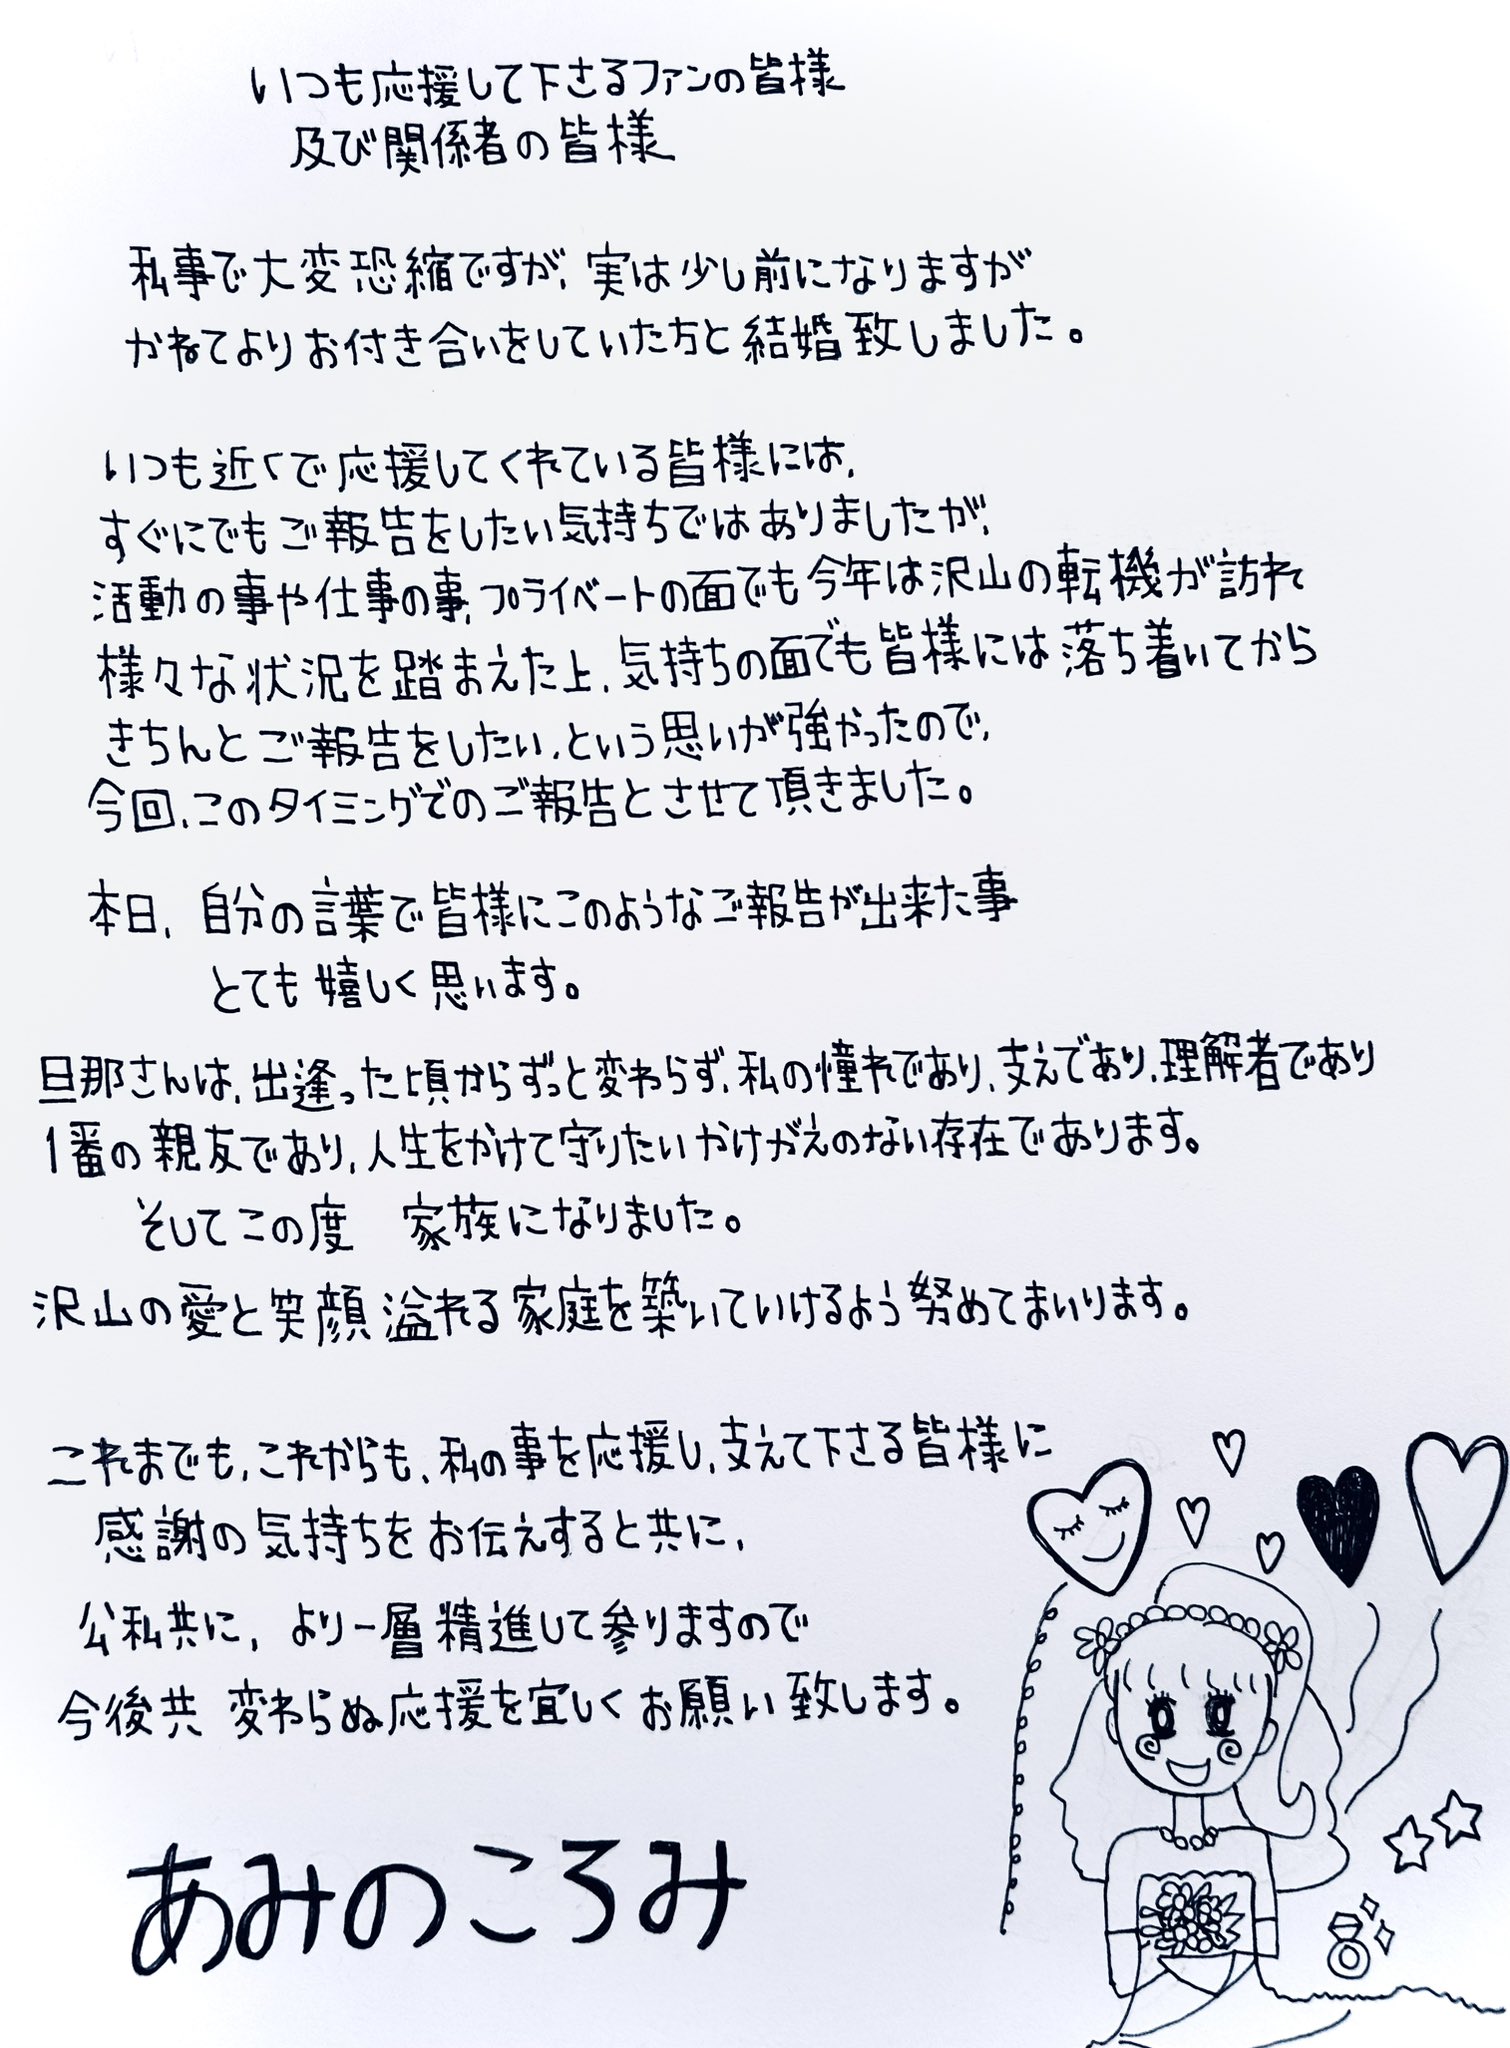 いつも応援して下さるファンの皆様
及び関係者の皆様
私事で大変恐縮ですが、実は少し前になりますが
かねてよりお付き合いをしていた方と結婚致しました。
いつも近くで応援してくれている皆様には、
すぐにでもご報告をしたい気持ちではありましたが、
活動の事や仕事の事、プライベートの面でも今年は沢山の転機が訪れ
様々な状況を踏まえた上、気持ちの面でも皆様には落ち着いてから
きちんとご報告をしたい、という思いが強かったので、
今回、このタイミングでのご報告とさせて頂きました。
本日、自分の言葉で皆様にこのようなご報告が出来た事
とても嬉しく思います。
旦那さんは、出逢った頃からずっと変わらず、私の憧れであり、支えであり、理解者であり
1番の親友であり、人生をかけて守りたいかけがえのない存在であります。
そしてこの度 家族になりました。
沢山の愛と笑顔溢れる家庭を築いていけるよう努めてまいります。
これまでも、これからも、私の事を応援し、支えて下さる皆様に
感謝の気持ちをお伝えすると共に、
公私共に、より一層精進して参りますので
今後共 変わらぬ応援を宜しくお願い致します。
あみのころみ